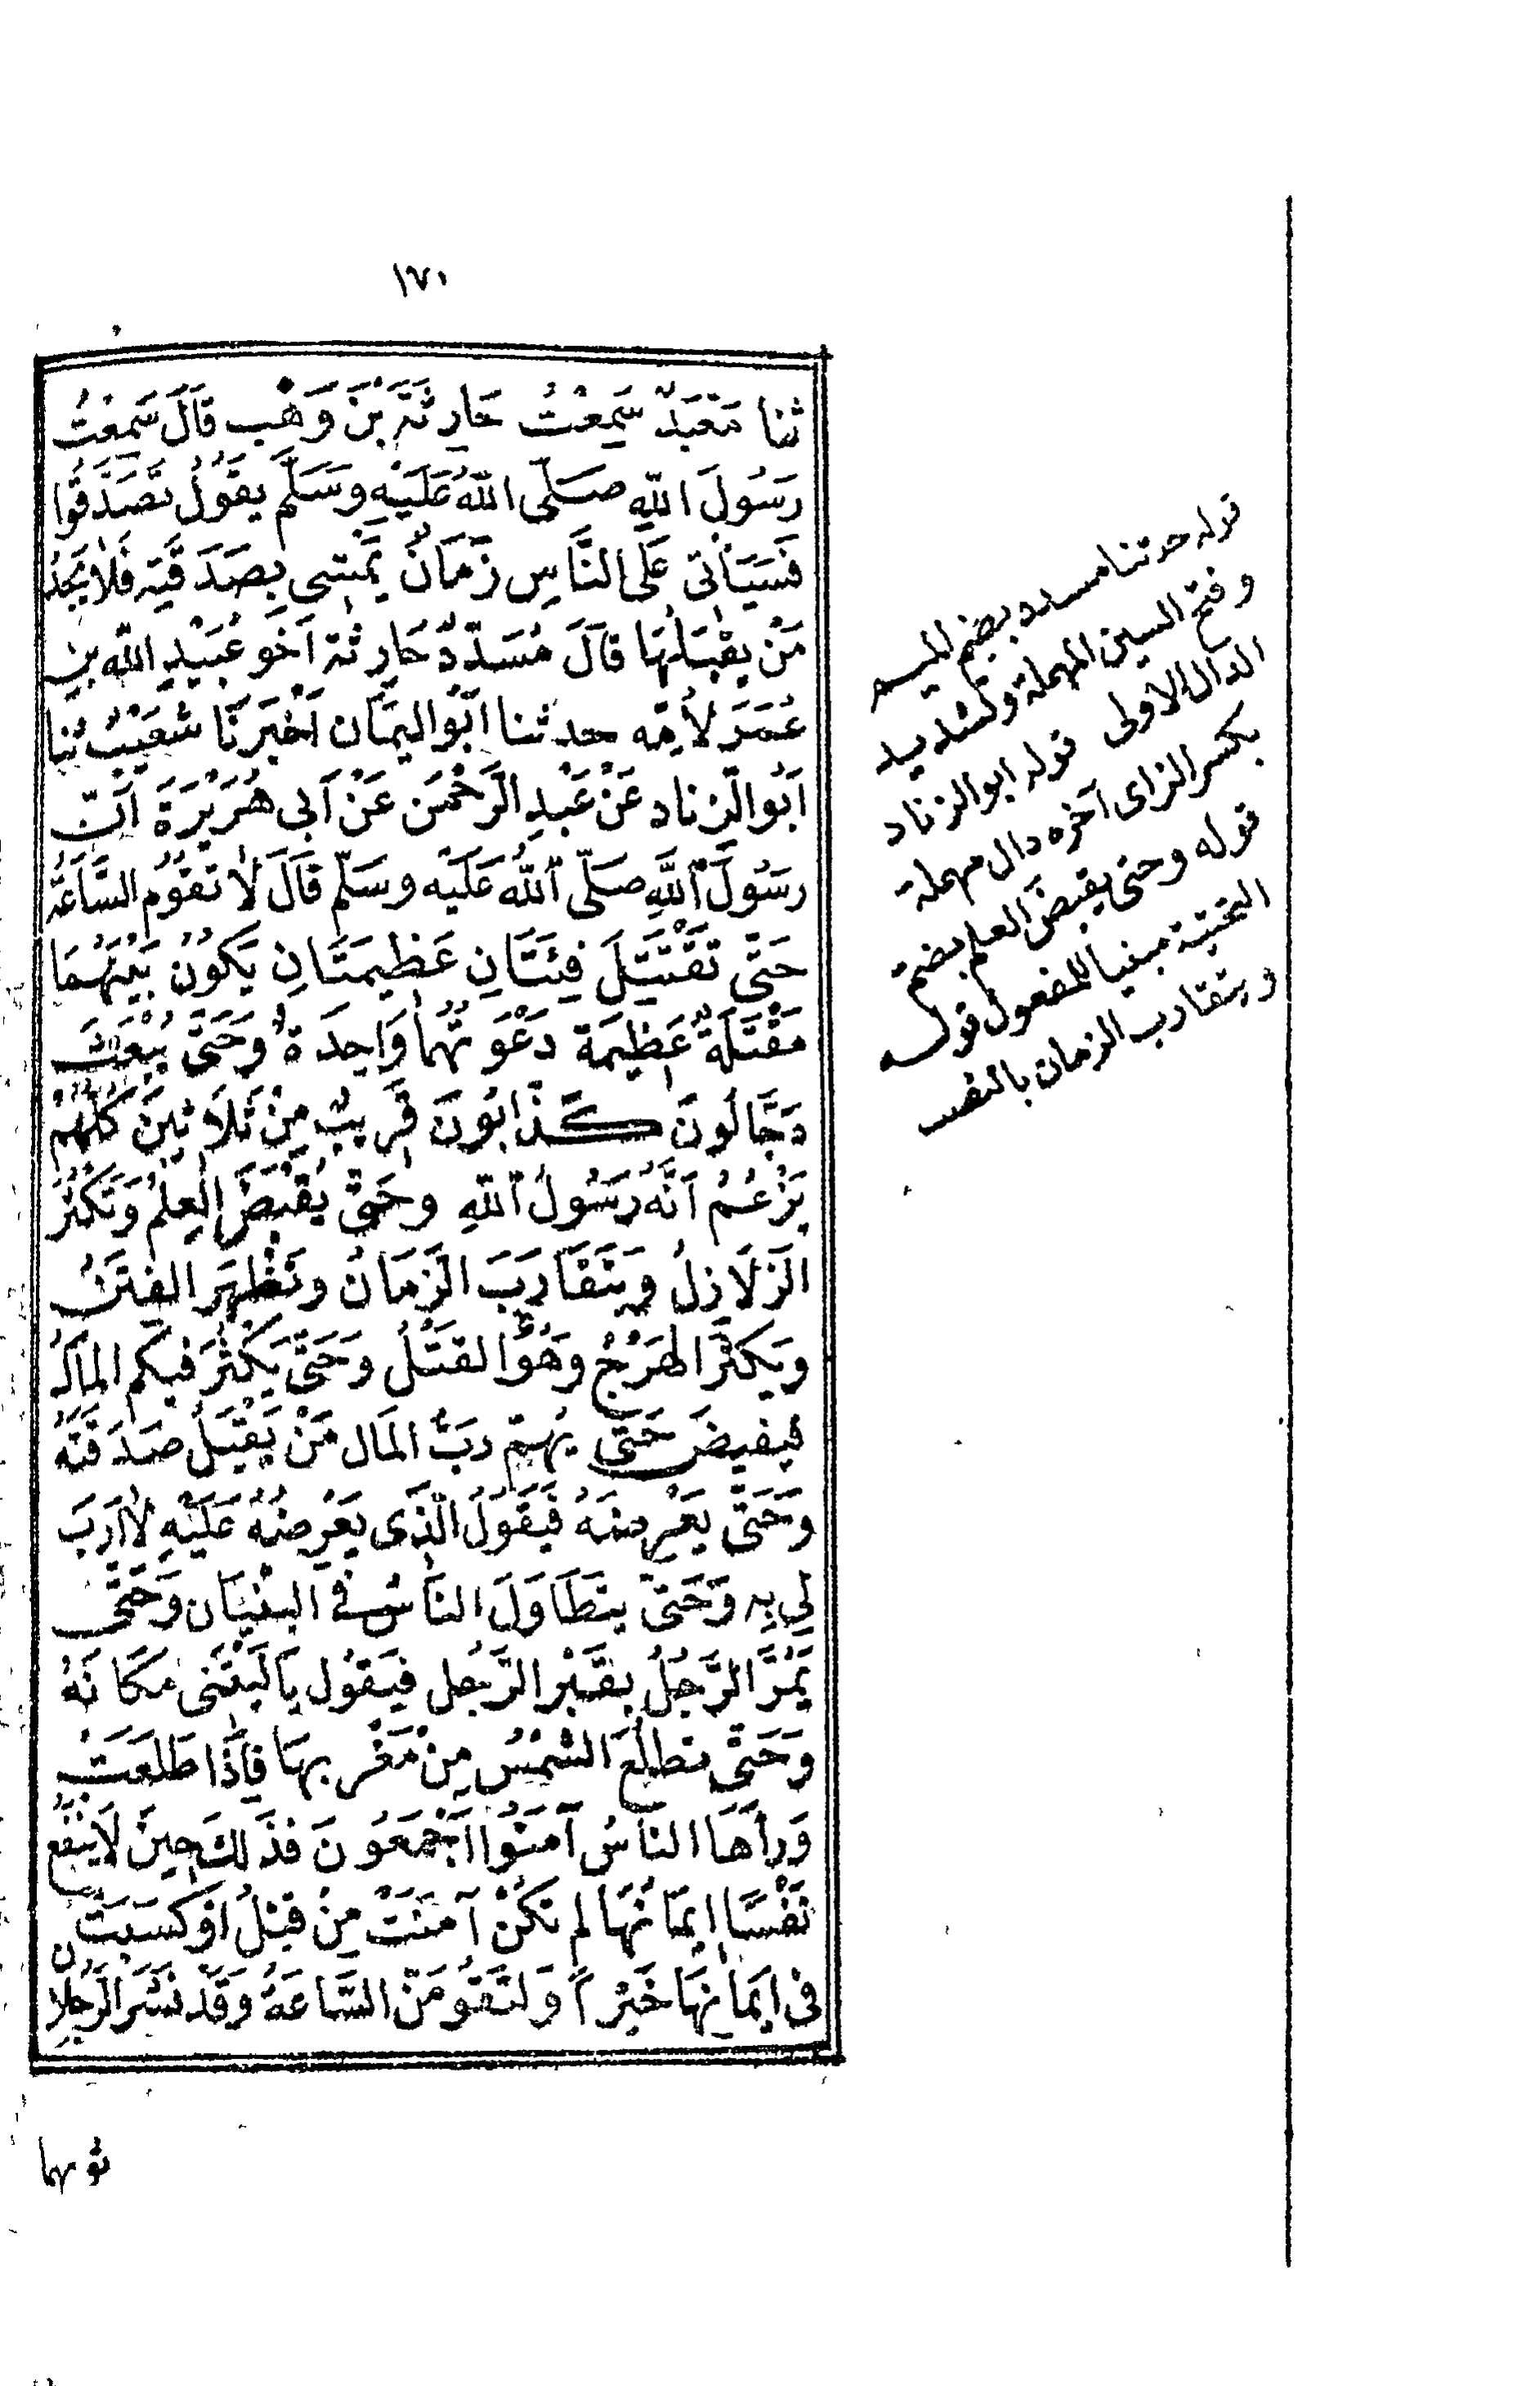 ١٧٠
ثنا مَعْبَدٌ سَمِعْتُ حَارِثَةَ بْنَ وَهْب قَالَ سَمِعْتُ
رَسُولَ اللّٰهِ صَلَّى اللّٰهُ عَلَيْهِ وَسَلَّمَ يَقُولُ تَصَدَّقُوا
فَسَيَأْتِى عَلَى النَّاسِ زَمَانٌ يَمْشِى بِصَدَقَتِهِ فَلَا يَجِدُ
مَنْ يَقْبَلُهَا قَالَ مُسَدَّدٌ حَارِثَة اَخُو عُبَيْدِ اللّٰه بن
عُمَرَ لأُمِّه حدثنا اَبُو اليَمَان اَخْبَرَنَا شُعَيْبٌ ثنا
اَبُو الزِّنَاد عَنْ عَبْدِ الرَّحْمن عَنْ اَبِى هُرَيْرَةَ اَنَّ
رَسُولَ اللّٰهِ صَلّى اللّٰهُ عَلَيْه وسَلّم قَالَ لَا تَقُومُ السَّاعَةُ
حَتَّى تَقْتَتِلَ فِئَتَانِ عَظِيمَتَانِ يَكُونُ بَيْنَهُمَا
مَقْتَلَةٌ عَظِيمَة دَعْوَتُهُمَا وَاحِدَةٌ وَحَتَّى يُبْعَثَ
دَجَّالُونَ كَذَّابُونَ قَرِيبٌ مِنْ ثَلَاثِينَ كُلُّهُمْ
يَزْعُمُ اَنَّهُ رَسُولُ اللّٰهِ وحَتّى يُقْبَضَ العِلْمُ وَتَكْثُرَ
الزَّلَازِلُ وَيَتَقَارَبَ الزَّمَانُ وتَظْهَرَ الفِتَنُ
ويَكْثُرَ الهَرْجُ وهُوَ القَتْلُ وَحَتَّى يَكْثُرَ فيكم المَالُ
فيفيضَ حَتَّى يُهِمّ رَبَّ المَال مَنْ يَقْبَلُ صَدَقَتَهُ
وَحَتَّى يَعْرِضَهُ فَيَقُولَ الَّذِى يَعْرِضُهُ عَلَيْهِ لَا اَرَبَ
لِي بِهِ وَحَتَّى يتَطَاوَلَ النَاسُ فى البُنْيَان وَحَتَّى
يَمُرَّ الرَّجُلُ بقَبْرِ الرَّجُل فيَقُول يَا لَيْتَنِى مَكَانَهُ
وَحَتَّى تطلُعَ الشَّمْسُ مِنْ مَغْرِبِهَا فَاِذَا طَلَعَتْ
وَرَأَهَا النَاسُ آمَنُوا اَجْمَعُونَ فذَلكَ حِينَ لَا يَنْفَعُ
نَفْسًا اِيمَانُهَا لم تَكُنْ آمَنَتْ مِنْ قَبْلُ اَوْ كَسَبَتْ
فى اِيمَانِهَا خَيْراً وَلتَقُومَنّ السَّاعَةُ وَقَدْ نَشَرَ الرَّجُلانِ
ثوبهما
قوله حدثنا مسدد بضم الميم
وفتح السين المهملة وتشديد
الدال الاولى قوله ابو الزناد
بكسر الزاى آخره دال مهملة
قوله وحتى يقبض العلم بضم
التحتية مبنيا للمفعول قوله
ويتقارب الزمان بالنصب